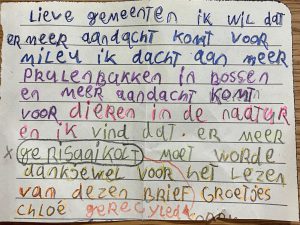 Lieve gemeenten ik wil dat
er meer aandacht komt voor
mileu ik dacht aan meer
prulenbakken in bossen
en meer aandacht komt
voor dieren in de naatur
en ik vind dat er meer
x gerisaaikolt moet worde
dankjewel voor het lezen
van dezen brief groetjes
chloé gerecycled